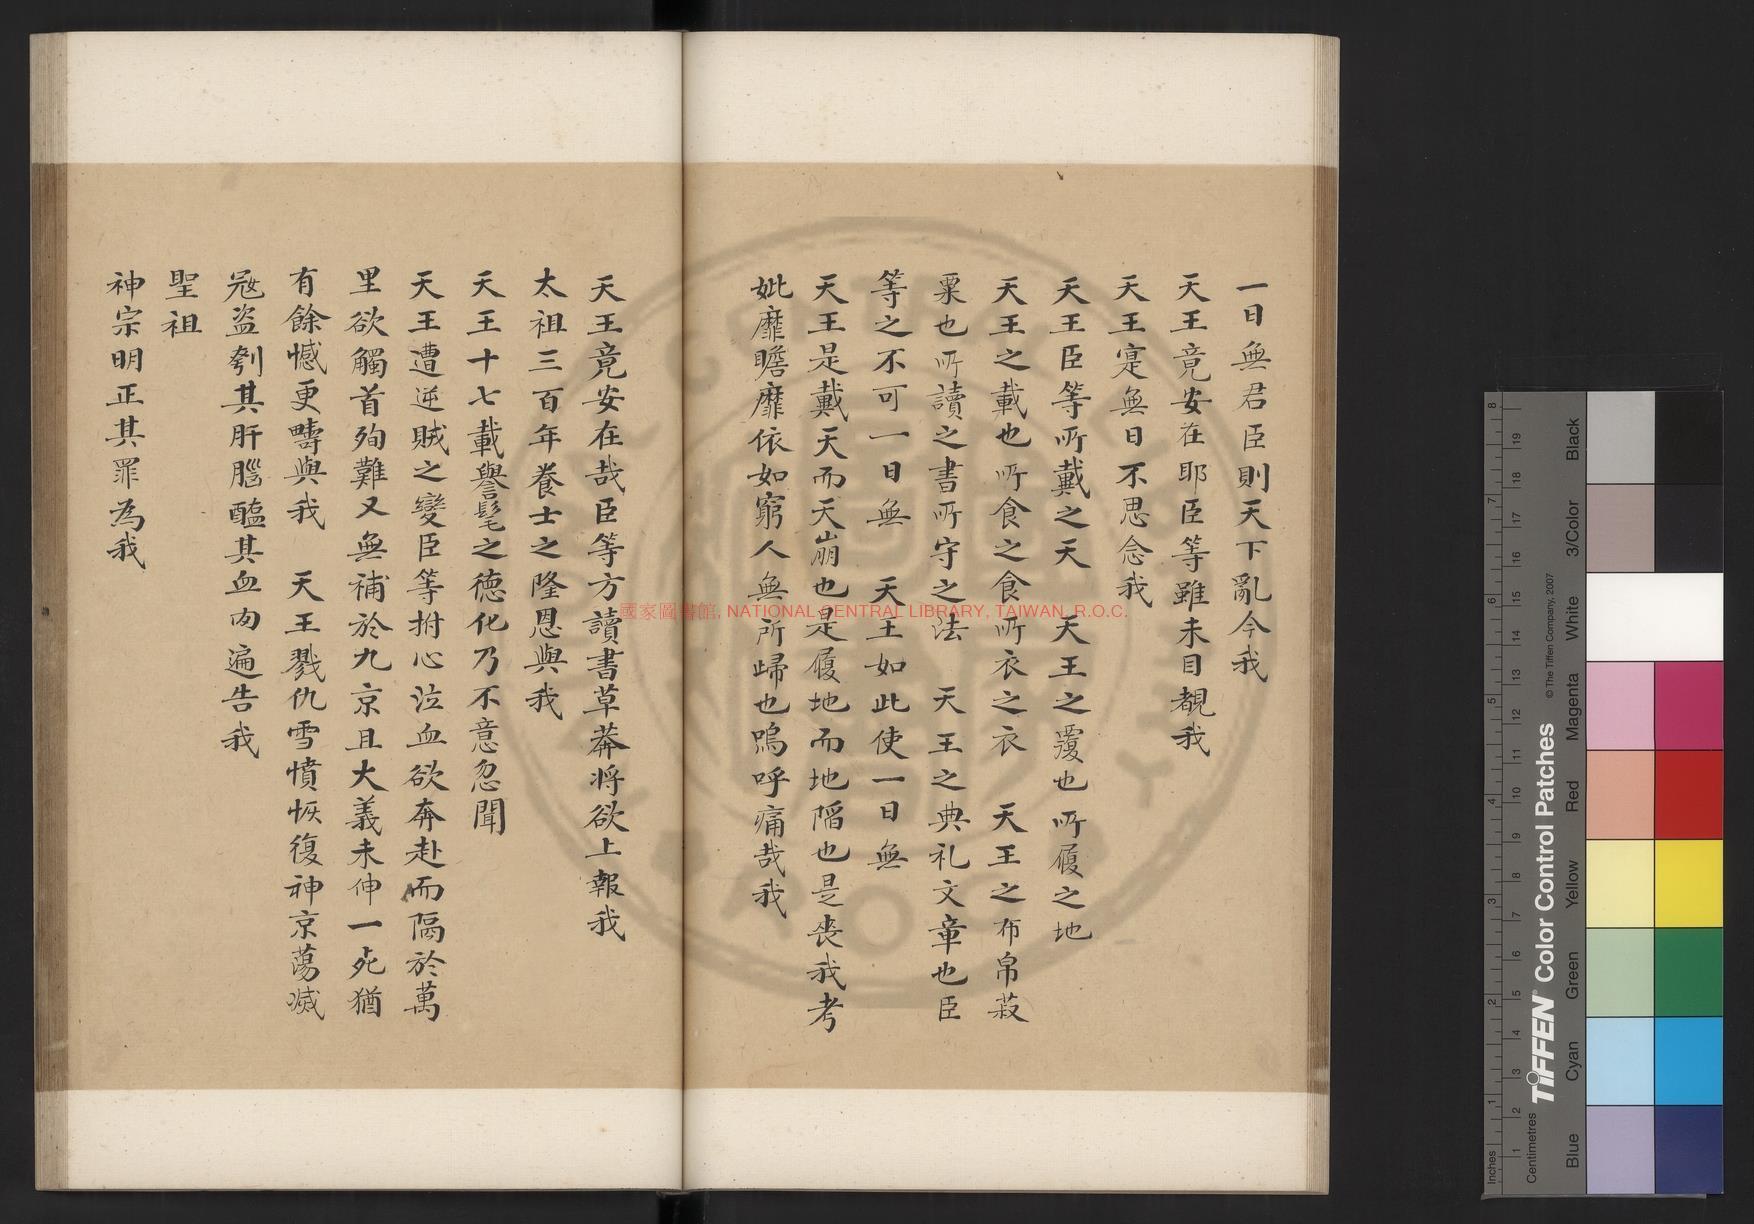 一日無君臣則天下亂今我
天王竟安在耶臣等雖未目覩我
天王寔無日不思念我
天王臣等所戴之天　天王之覆也所履之地
天王之載也所食之食所衣之衣　天王之布帛菽
粟也所讀之書所守之法　天王之典礼文章也臣
等之不可一日無　天王如此使一日無
天王是戴天而天崩也是履地而地陷也是喪我考
妣靡瞻靡依如窮人無所歸也嗚呼痛哉我
天王竟安在哉臣等方讀書草莽将欲上報我
太祖三百年養士之隆恩與我
天王十七載譽髦之德化乃不意忽聞
天王遭逆賊之變臣等拊心泣血欲奔赴而隔於萬
里欲觸首殉難又無補於九京且大義未伸一死猶
有餘憾更疇與我　天王戮仇雪憤恢復神京蕩滅
寇盗刳其肝腦醢其血肉遍告我
聖祖
神宗明正其罪為我
國家圖書館, NATIONAL CENTRAL LIBRARY, TAIWAN, R.O.C.
Inches
Centimetres
TIFFEN® Color Control Patches
© The Tiffen Company, 2007
Blue
Cyan
Green
Yellow
Red
Magenta
White
3/Color
Black